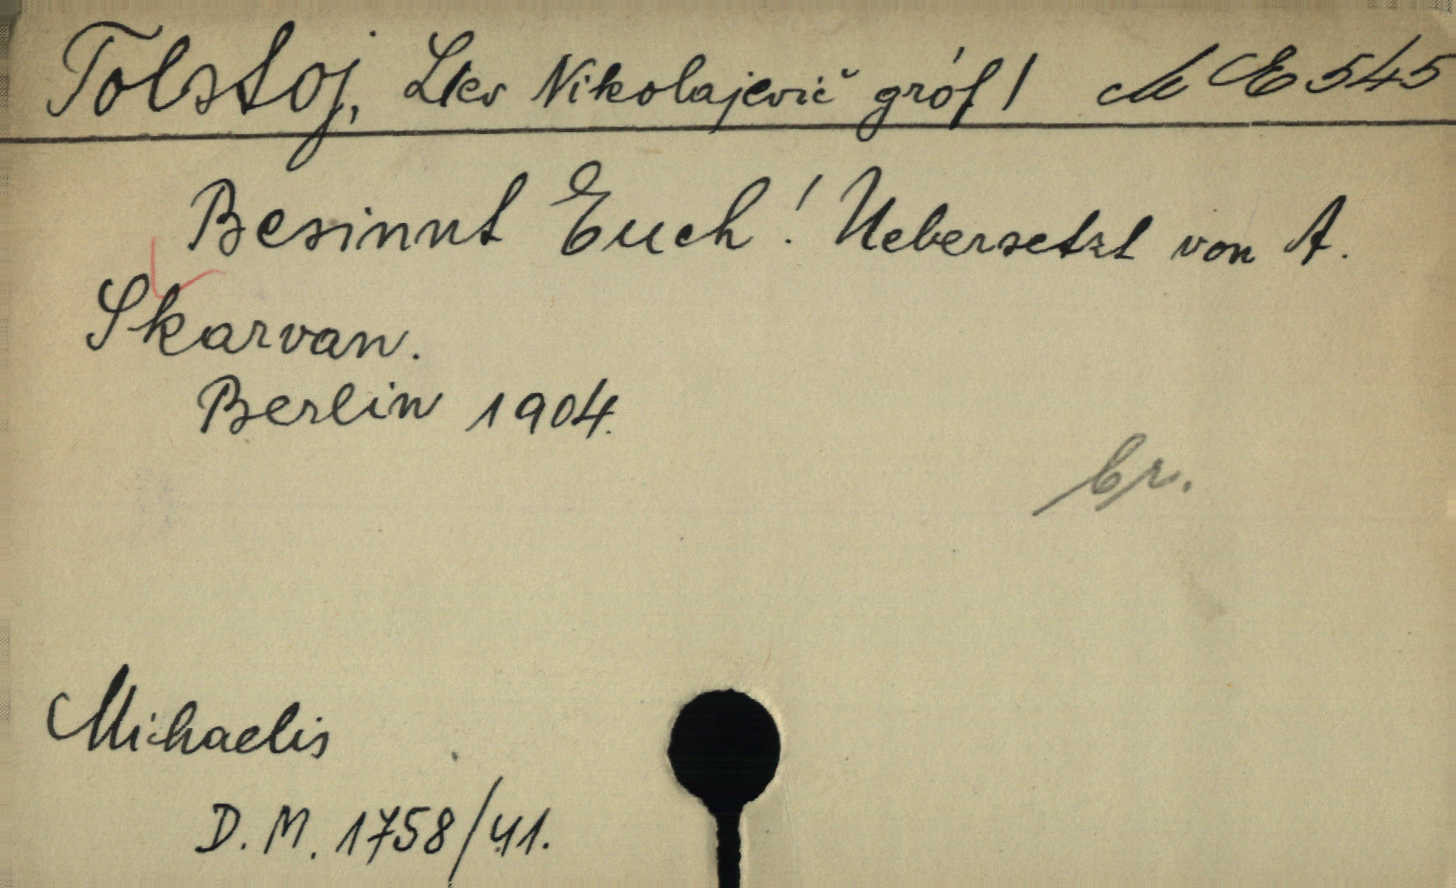 Tolstoj, Lev Nikolajevič gróf / M E 545
Besinnt Euch! Uebersetzt von A.
Skarvan.
Berlin 1904.
Michaelis
D. M. 1758/41.